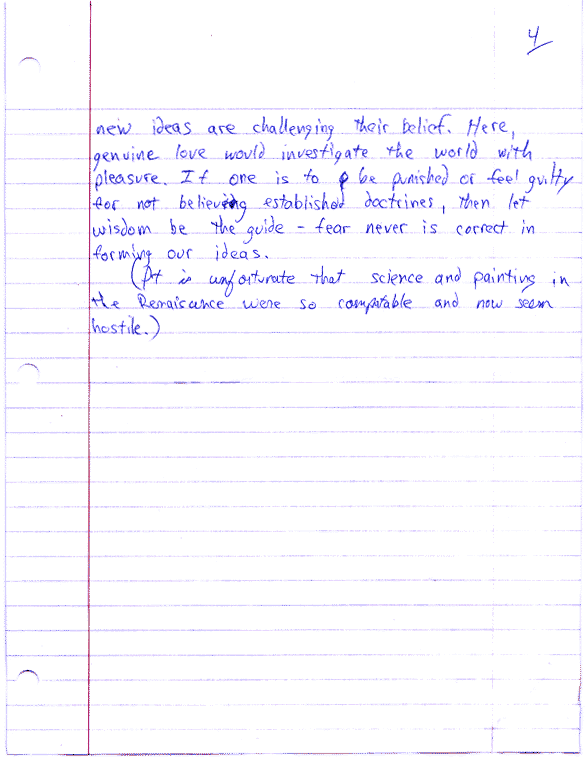 4
new ideas are challenging their belief. Here,
genuine love would investigate the world with
pleasure. If one is to be punished or feel guilty
for not believing established doctrines, then let
wisdom be the guide - fear never is correct in
forming our ideas.
(It is unfortunate that science and painting in
the Renaisance were so compatable and now seem
hostile.)